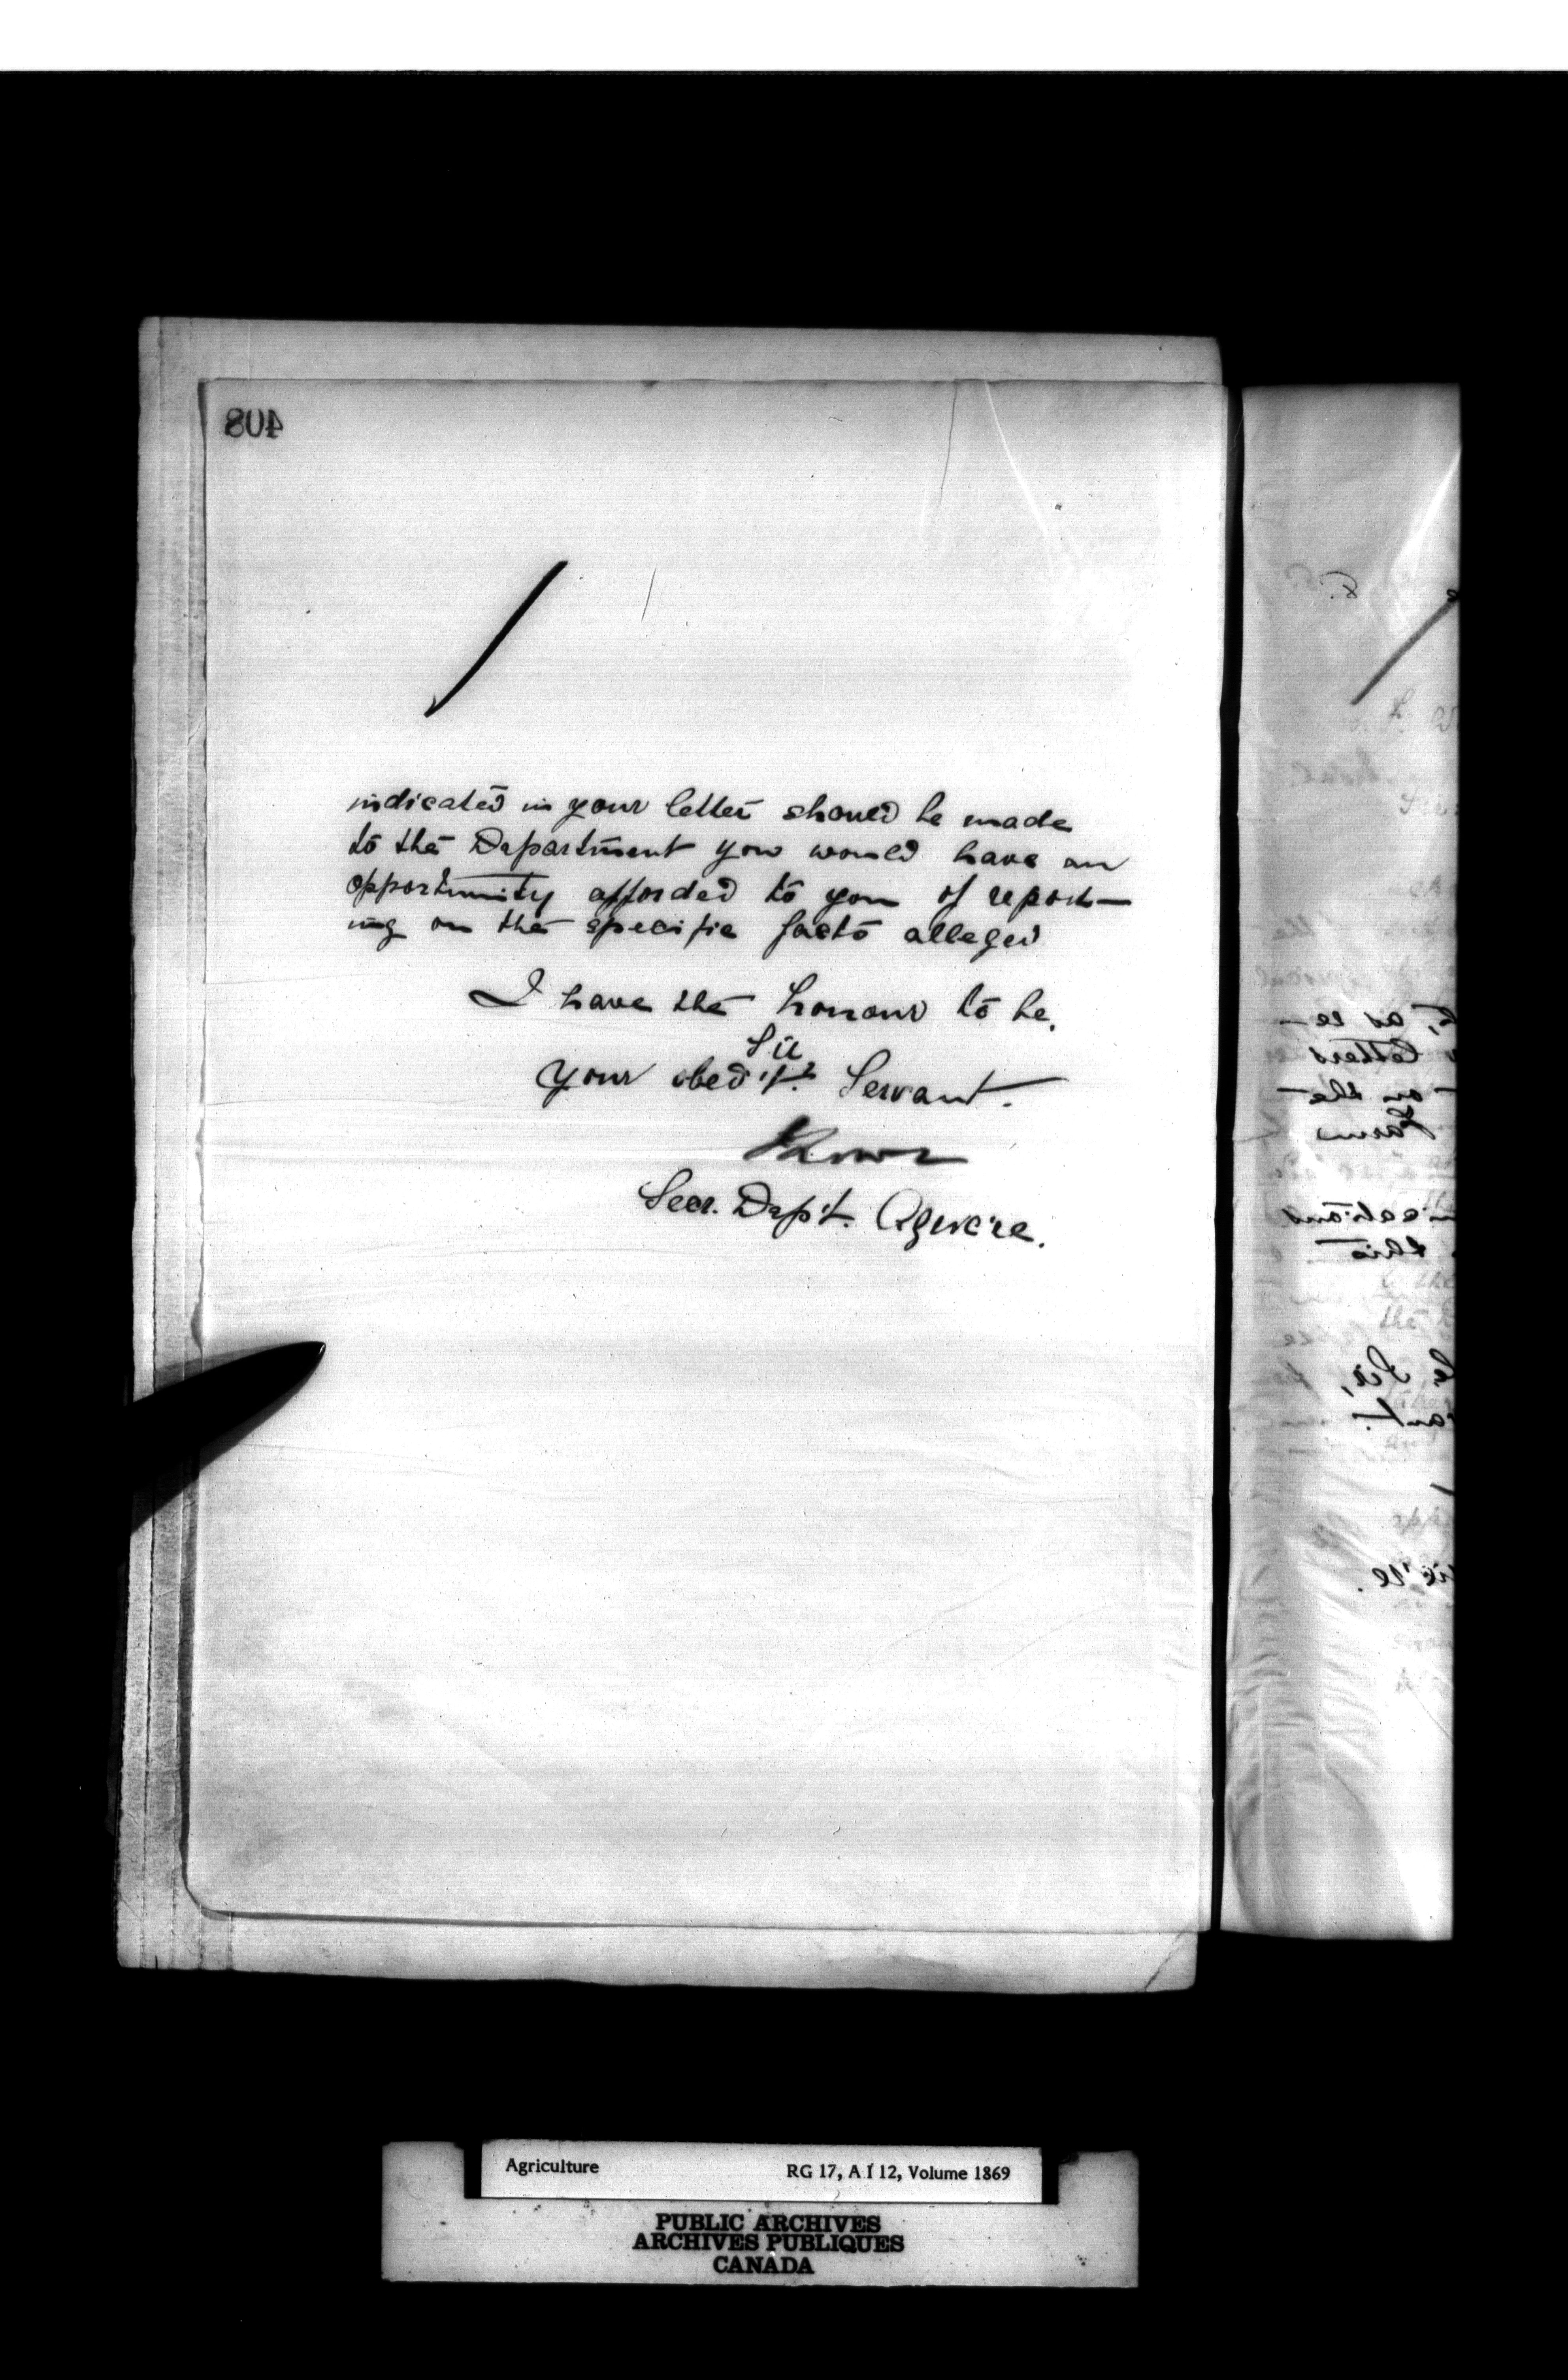 408
indicated in your letter should be made
to the Department you would have an
opportunity afforded to you of report—
ing on the specific facts alleged
I have the honour to be,
Sir
Your obed't. Servant.
Secr. Dep't. Agric're.
as re—
letters
on the
Farms
this
the
Sir,
Agriculture
RG 17, A I 12, Volume 1869
PUBLIC ARCHIVES
ARCHIVES PUBLIQUES
CANADA